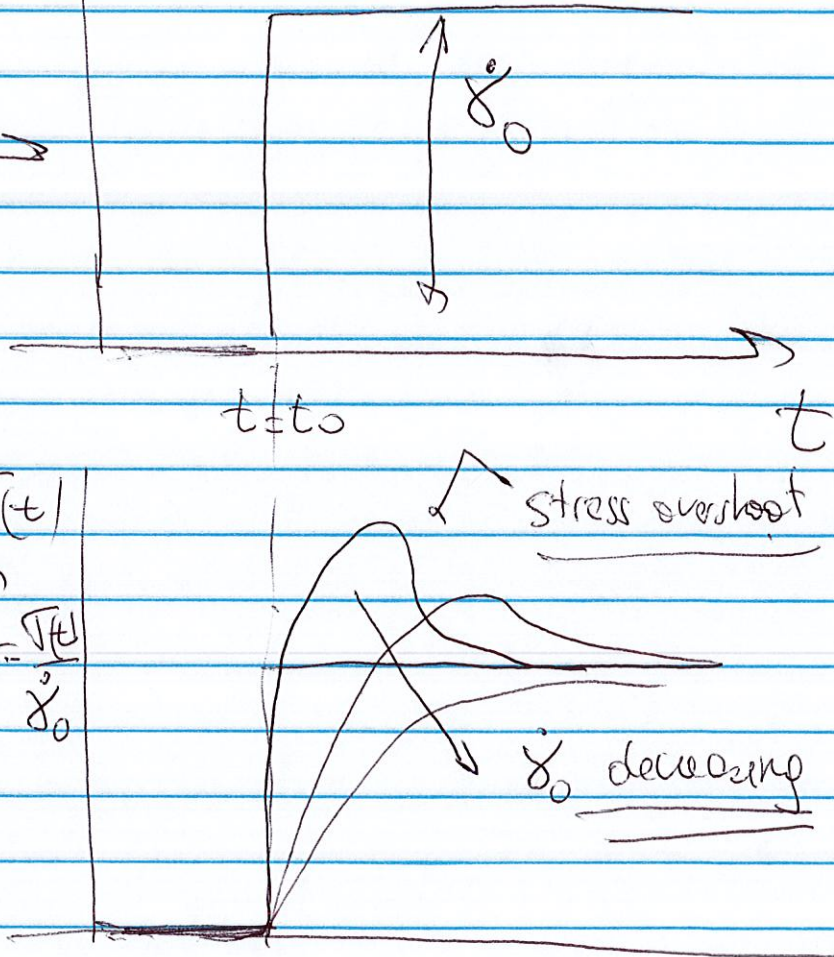 γ̇₀
t=t₀
t
(t)
stress overshoot
= σ(t)
γ̇₀
γ̇₀ decreasing